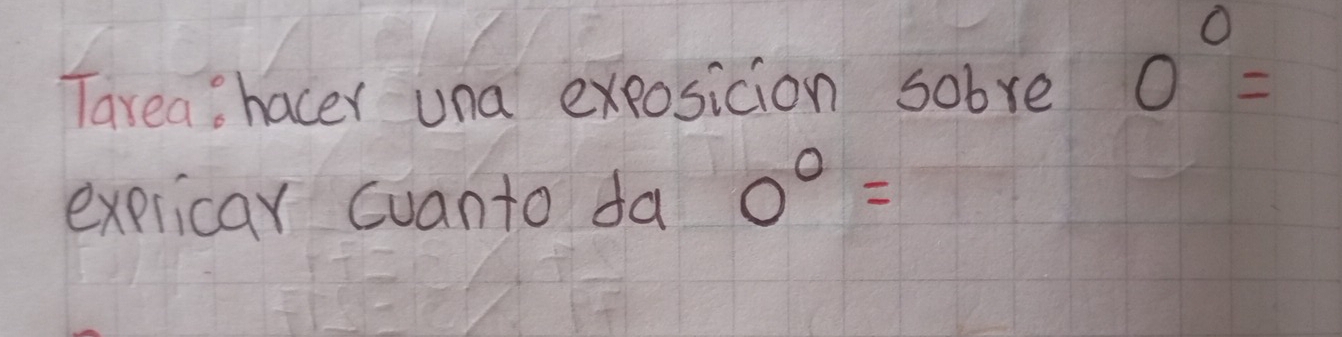 Tarea: hacer una exposicion sobre 0⁰=
explicar cuanto da 0⁰=